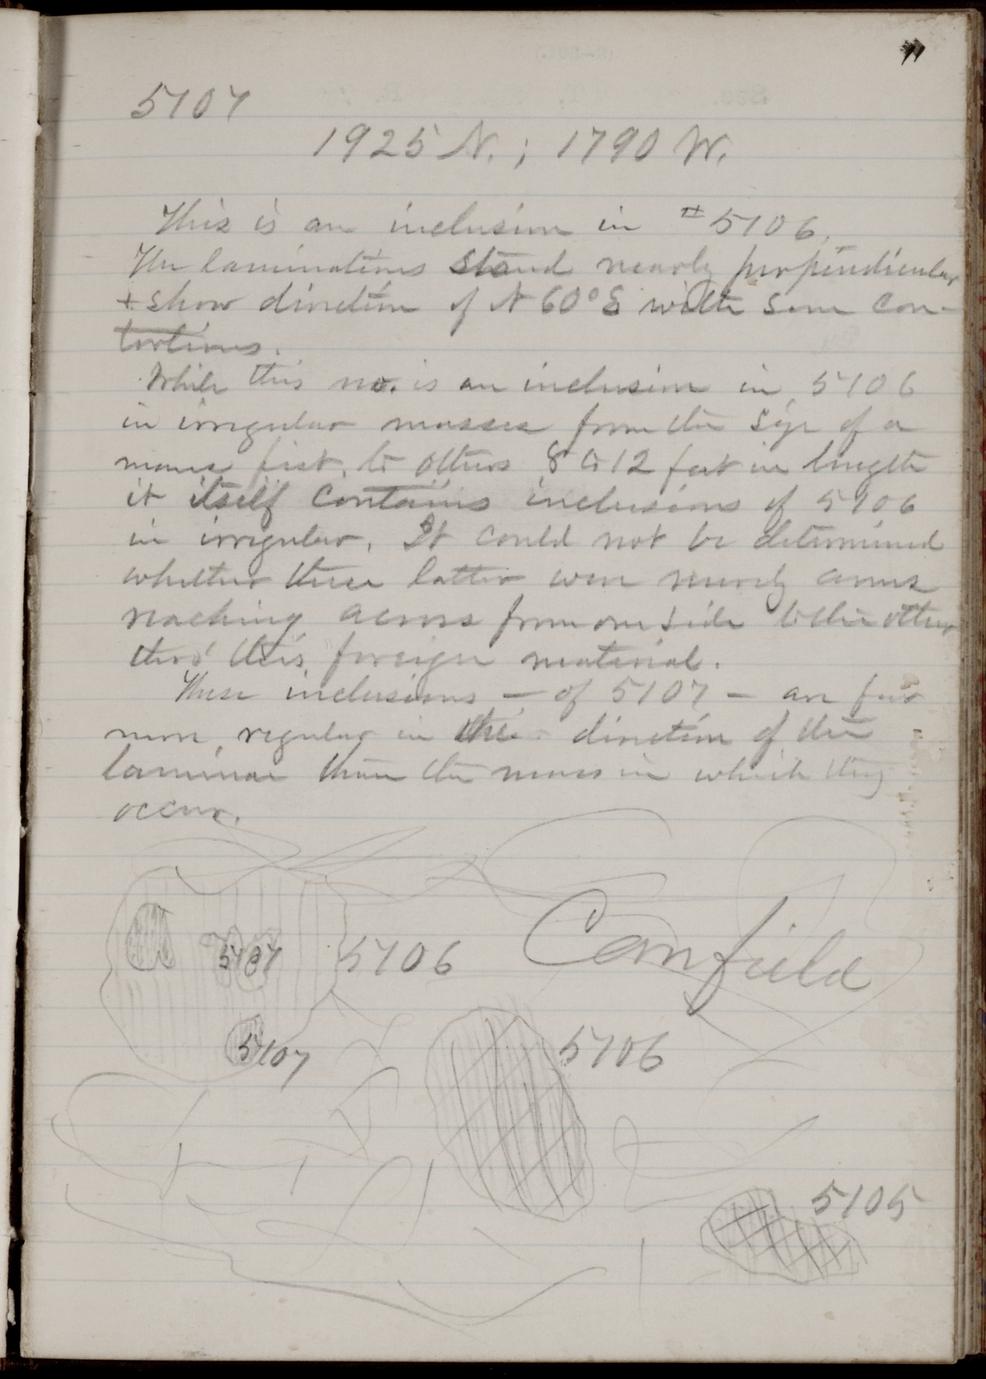 11
5107
1925 N.; 1790 W.
This is an inclusion in #5106.
The laminations stand nearly perpendicular
+ show direction of N 60° E with some con-
tortions.
While this no. is an inclusion in 5106
in irregular masses from the size of a
mans fist, to others 8 to 12 feet in length
it itself contains inclusions of 5106
in irregular. It could not be determined
whether these latter were merely arms
reaching across from one side to the other
thro' this foreign material.
These inclusions — of 5107 — are far
more regular in the direction of the
laminae than the mass in which they
occur.
5107 5106 Canfield
5107 5106
5105